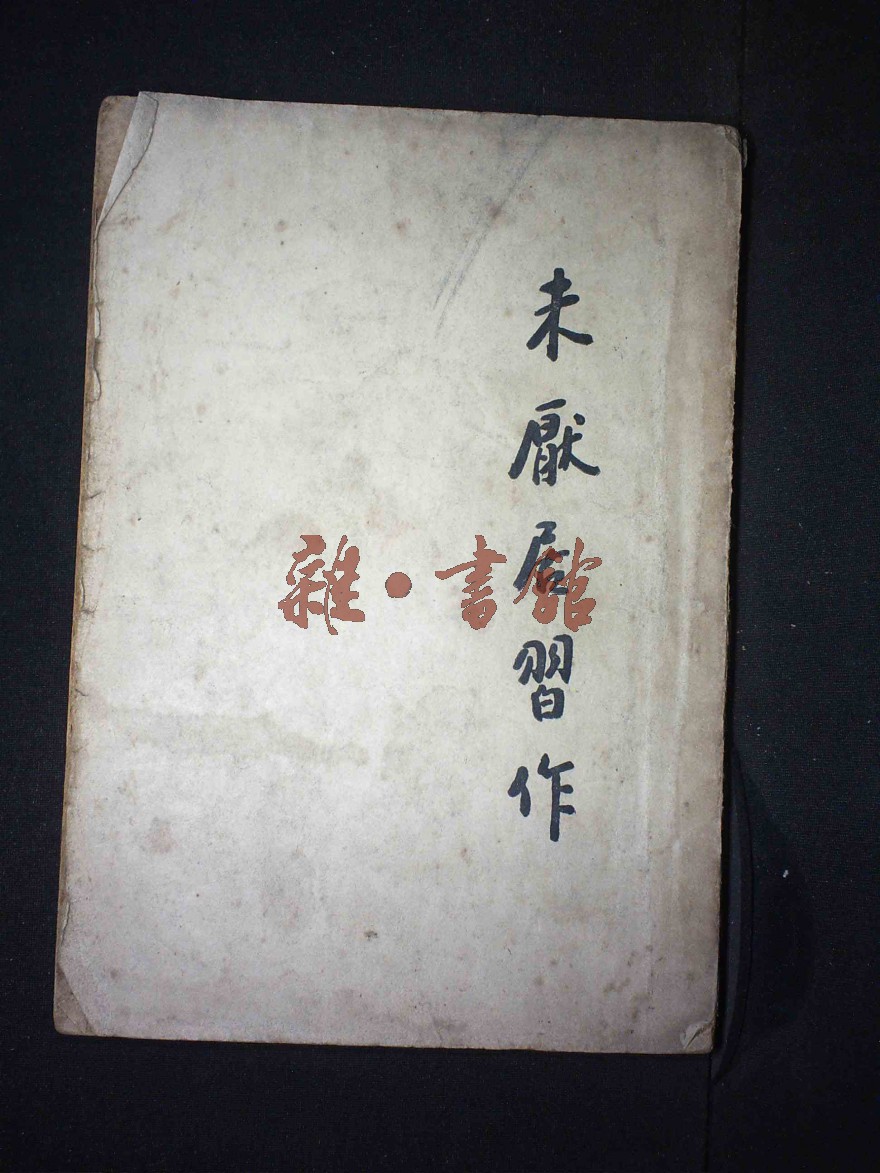 未厭居習作
雜·書館